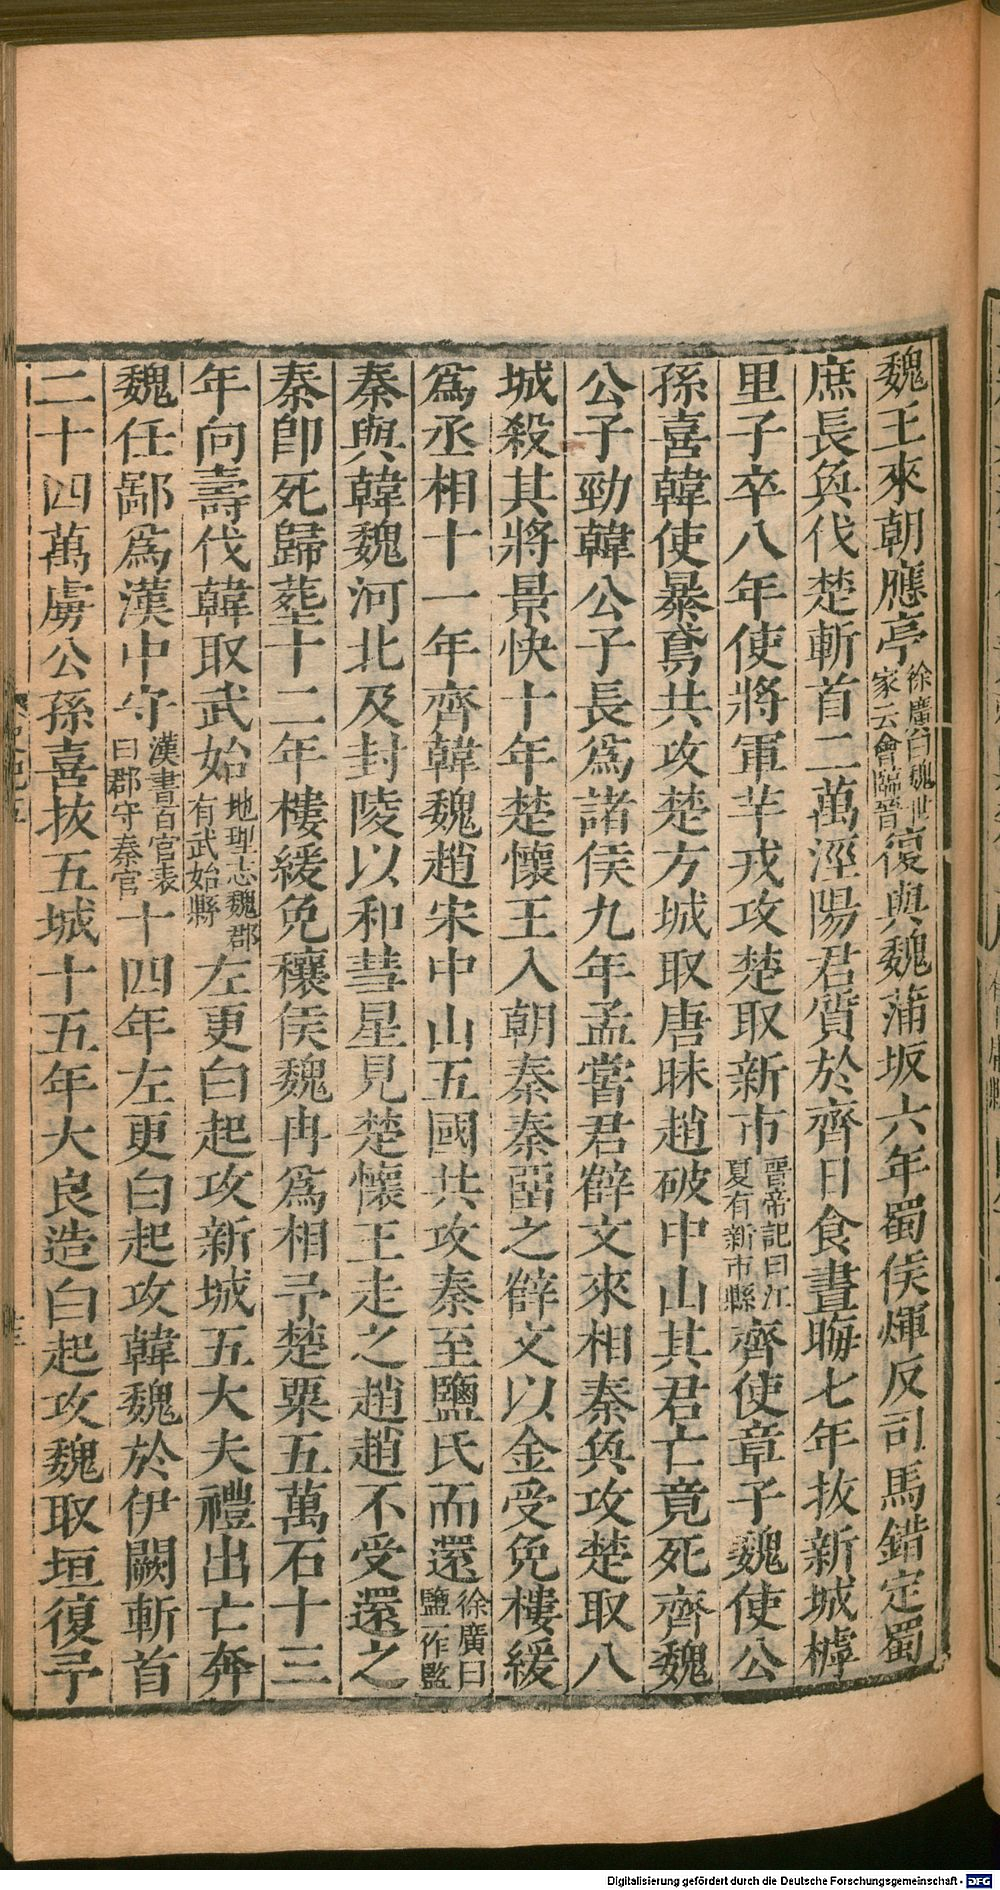 魏王來朝應亭徐廣曰魏世家云會臨晉復與魏蒲坂六年蜀侯煇反司馬錯定蜀
庶長奐伐楚斬首二萬涇陽君質於齊日食晝晦七年拔新城樗
里子卒八年使將軍羋戎攻楚取新市晉帝記曰江夏有新市縣齊使章子魏使公
孫喜韓使暴鳶共攻楚方城取唐昧趙破中山其君亡竟死齊魏
公子勁韓公子長爲諸侯九年孟嘗君薛文來相秦奐攻楚取八
城殺其將景快十年楚懷王入朝秦秦留之薛文以金受免樓緩
爲丞相十一年齊韓魏趙宋中山五國共攻秦至鹽氏而還徐廣曰鹽一作監
秦與韓魏河北及封陵以和彗星見楚懷王走之趙趙不受還之
秦卽死歸葬十二年樓緩免穰侯魏冉爲相予楚粟五萬石十三
年向壽伐韓取武始地理志魏郡有武始縣左更白起攻新城五大夫禮出亡奔
魏任鄙爲漢中守漢書百官表曰郡守秦官十四年左更白起攻韓魏於伊闕斬首
二十四萬虜公孫喜拔五城十五年大良造白起攻魏取垣復予
Digitalisierung gefördert durch die Deutsche Forschungsgemeinschaft - DFG